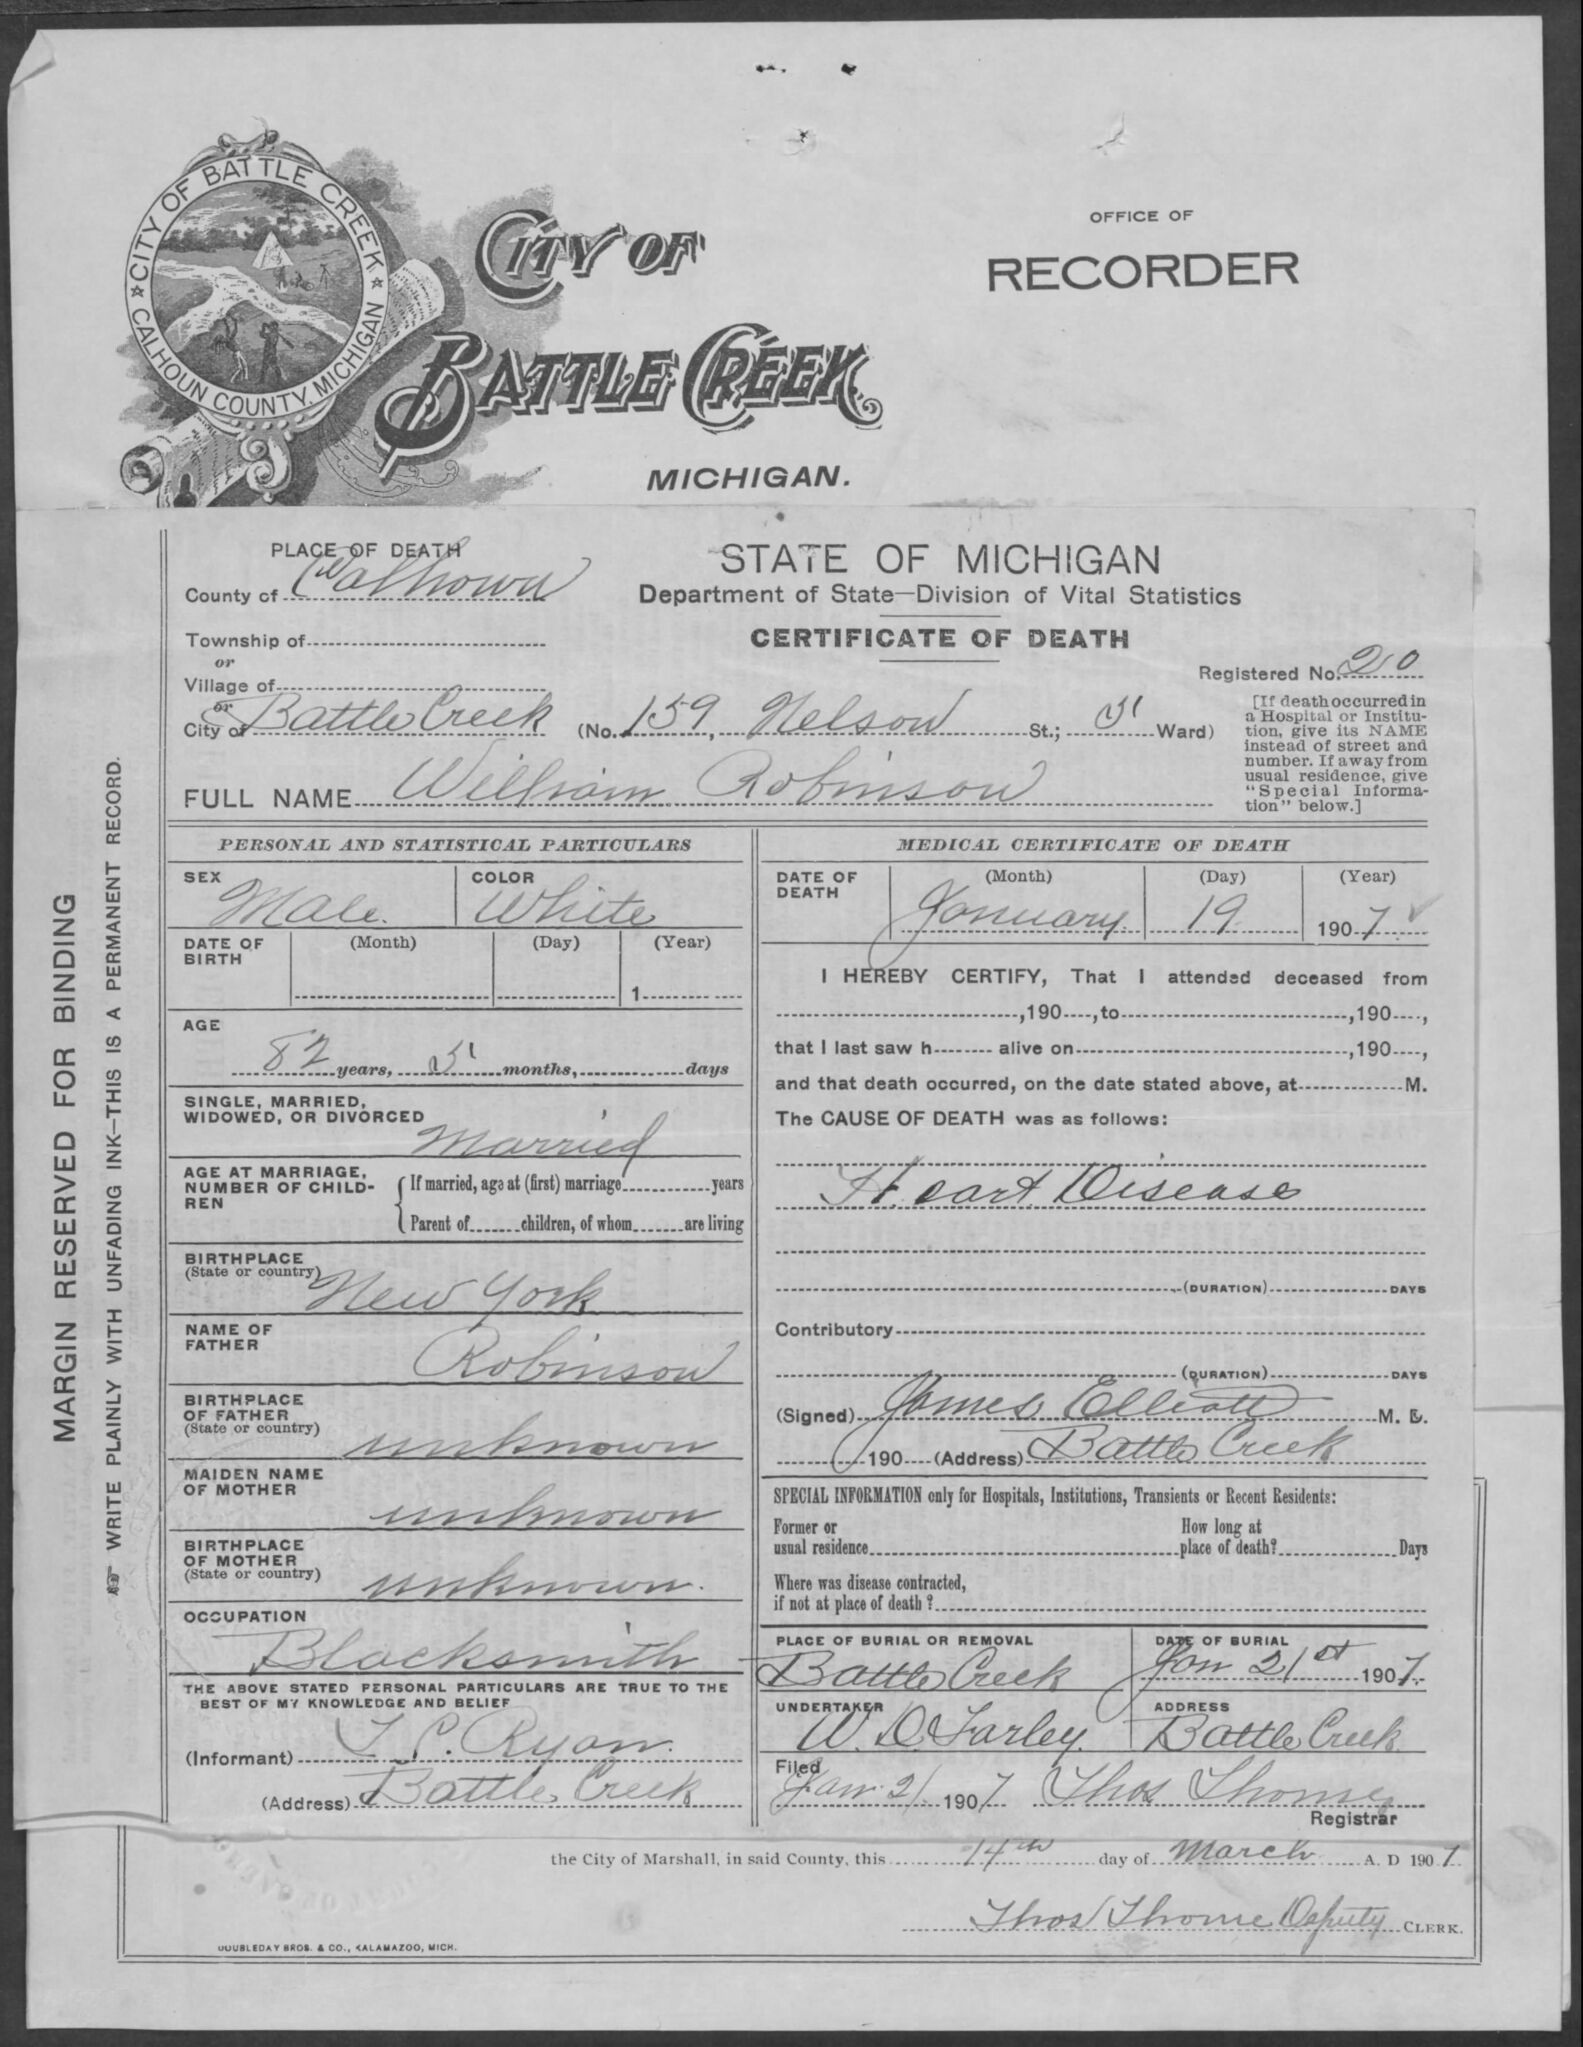 CITY OF BATTLE CREEK
CALHOUN COUNTY, MICHIGAN
CITY OF
BATTLE CREEK
MICHIGAN.
OFFICE OF
RECORDER
MARGIN RESERVED FOR BINDING
WRITE PLAINLY WITH UNFADING INK—THIS IS A PERMANENT RECORD.
PLACE OF DEATH
County of Calhoun
Township of
or
Village of
or
City of Battle Creek (No. 159, Nelson St.; 5 Ward)
STATE OF MICHIGAN
Department of State—Division of Vital Statistics
CERTIFICATE OF DEATH
Registered No. 210
[If death occurred in
a Hospital or Institu-
tion, give its NAME
instead of street and
number. If away from
usual residence, give
"Special Informa-
tion" below.]
FULL NAME William Robinson
PERSONAL AND STATISTICAL PARTICULARS
SEX
Male.
COLOR
White
DATE OF
BIRTH
(Month) (Day) (Year)
1
AGE
82 years, 5 months, days
SINGLE, MARRIED,
WIDOWED, OR DIVORCED
Married
AGE AT MARRIAGE,
NUMBER OF CHILD-
REN
If married, age at (first) marriage years
Parent of children, of whom are living
BIRTHPLACE
(State or country)
New York
NAME OF
FATHER
Robinson
BIRTHPLACE
OF FATHER
(State or country)
unknown
MAIDEN NAME
OF MOTHER
unknown
BIRTHPLACE
OF MOTHER
(State or country)
unknown.
OCCUPATION
Blacksmith
THE ABOVE STATED PERSONAL PARTICULARS ARE TRUE TO THE
BEST OF MY KNOWLEDGE AND BELIEF
(Informant) P. Ryan.
(Address) Battle Creek
MEDICAL CERTIFICATE OF DEATH
DATE OF
DEATH
(Month) (Day) (Year)
January. 19. 1907
I HEREBY CERTIFY, That I attended deceased from
, 190 , to , 190 ,
that I last saw h alive on , 190 ,
and that death occurred, on the date stated above, at M.
The CAUSE OF DEATH was as follows:
Heart Disease
(DURATION) DAYS
Contributory
(DURATION) DAYS
(Signed) James Elliott M. D.
190 (Address) Battle Creek
SPECIAL INFORMATION only for Hospitals, Institutions, Transients or Recent Residents:
Former or
usual residence
How long at
place of death? Days
Where was disease contracted,
if not at place of death?
PLACE OF BURIAL OR REMOVAL
Battle Creek
DATE OF BURIAL
Jan 21st 1907.
UNDERTAKER
W. D. Farley.
ADDRESS
Battle Creek
Filed
Jan. 21. 1907 Thos Thorne
Registrar
the City of Marshall, in said County, this 14th day of March A. D 1907.
Thos Thorne Deputy CLERK.
DOUBLEDAY BROS. & CO., KALAMAZOO, MICH.